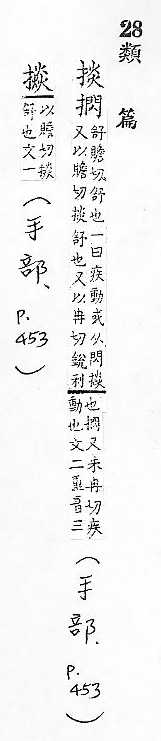 28類 篇
掞㨛
舒贍切舒也一曰疾動或从閃掞
又以贍切掞舒也又以冉切銳利
也㨛又未冉切疾
動也文二重音三
(手部、p.453)
掞
以贍切掞
舒也文一
(手部、p.453)